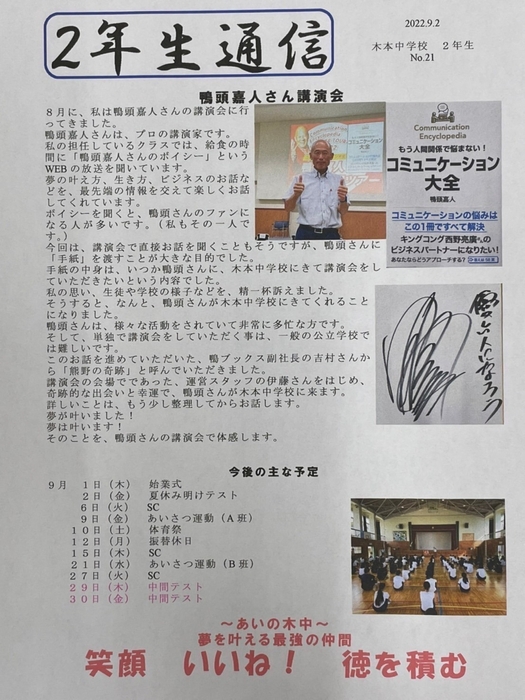 2年生通信
2022.9.2
木本中学校 2年生
No.21
鴨頭嘉人さん講演会
8月に、私は鴨頭嘉人さんの講演会に行
ってきました。
鴨頭嘉人さんは、プロの講演家です。
私の担任しているクラスでは、給食の時
間に「鴨頭嘉人さんのボイシー」という
WEBの放送を聞いています。
夢の叶え方、生き方、ビジネスのお話な
どを、最先端の情報を交えて楽しくお話
してくれています。
ボイシーを聞くと、鴨頭さんのファンに
なる人が多いです。(私もその一人で
す。)
今回は、講演会で直接お話を聞くこともそうですが、鴨頭さんに
「手紙」を渡すことが大きな目的でした。
手紙の中身は、いつか鴨頭さんに、木本中学校にきて講演会をし
ていただきたいという内容でした。
私の思い、生徒や学校の様子などを、精一杯訴えました。
そうすると、なんと、鴨頭さんが木本中学校にきてくれること
になりました。
鴨頭さんは、様々な活動をされていて非常に多忙な方です。
そして、単独で講演会をしていただく事は、一般の公立学校で
は難しいです。
このお話を進めていただいた、鴨ブックス副社長の吉村さんか
ら「熊野の奇跡」と呼んでいただきました。
講演会の会場でであった、運営スタッフの伊藤さんをはじめ、
奇跡的な出会いと幸運で、鴨頭さんが木本中学校に来ます。
詳しいことは、もう少し整理してからお話します。
夢が叶いました!
夢は叶います!
そのことを、鴨頭さんの講演会で体感します。
Communication
Encyclopedia
もう人間関係で悩まない!
コミュニケーション
大全
鴨頭嘉人
コミュニケーションの悩みは
この1冊ですべて解決
キングコング西野亮廣さんの
ビジネスパートナーになりたい!
あなたならどうアプローチする?
今後の主な予定
9月 1日(木) 始業式
2日(金) 夏休み明けテスト
6日(火) SC
9日(金) あいさつ運動(A班)
10日(土) 体育祭
12日(月) 振替休日
15日(木) SC
21日(水) あいさつ運動(B班)
27日(火) SC
29日(木) 中間テスト
30日(金) 中間テスト
~あいの木中~
夢を叶える最強の仲間
笑顔 いいね! 徳を積む